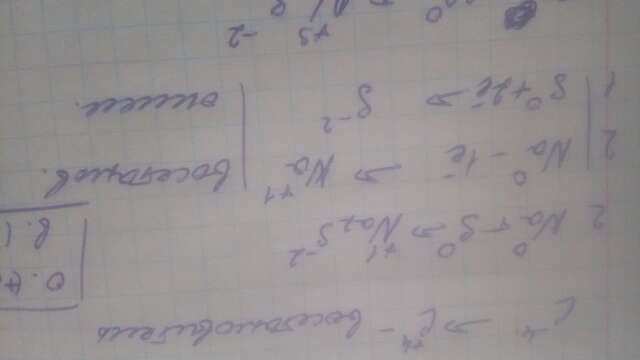 C⁻⁴ → C⁺⁴ - восстановитель
2Na⁰ + S⁰ → Na₂⁺¹S⁻²
2 | Na⁰ - 1e⁻ → Na⁺¹ | восстанов.
1 | S⁰ + 2e⁻ → S⁻² | окислит.